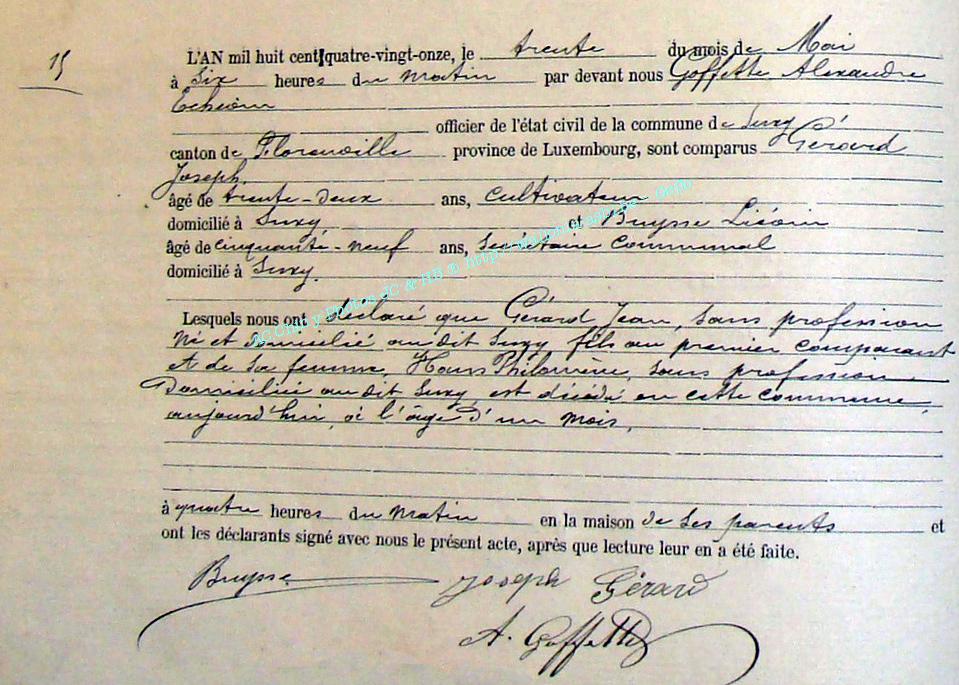 15
L'AN mil huit cent quatre-vingt-onze, le trente du mois de Mai
à Six heures du matin par devant nous Goffette Alexandre
Echevin
officier de l'état civil de la commune de Suxy
canton de Florenville province de Luxembourg, sont comparus Gérard
Joseph
âgé de trente-deux ans, cultivateur
domicilié à Suxy et Buysse
âgé de cinquante-neuf ans, Secrétaire communal
domicilié à Suxy.
Lesquels nous ont déclaré que Gérard Jean, sans profession
né et domicilié au dit Suxy fils au premier comparant
et de sa femme, Philomène, sans profession
Domiciliée au dit Suxy, est décédé en cette commune,
aujourd'hui, à l'âge d'un mois,
à quatre heures du matin en la maison de ses parents et
ont les déclarants signé avec nous le présent acte, après que lecture leur en a été faite.
Buysse Joseph Gérard
A. Goffette